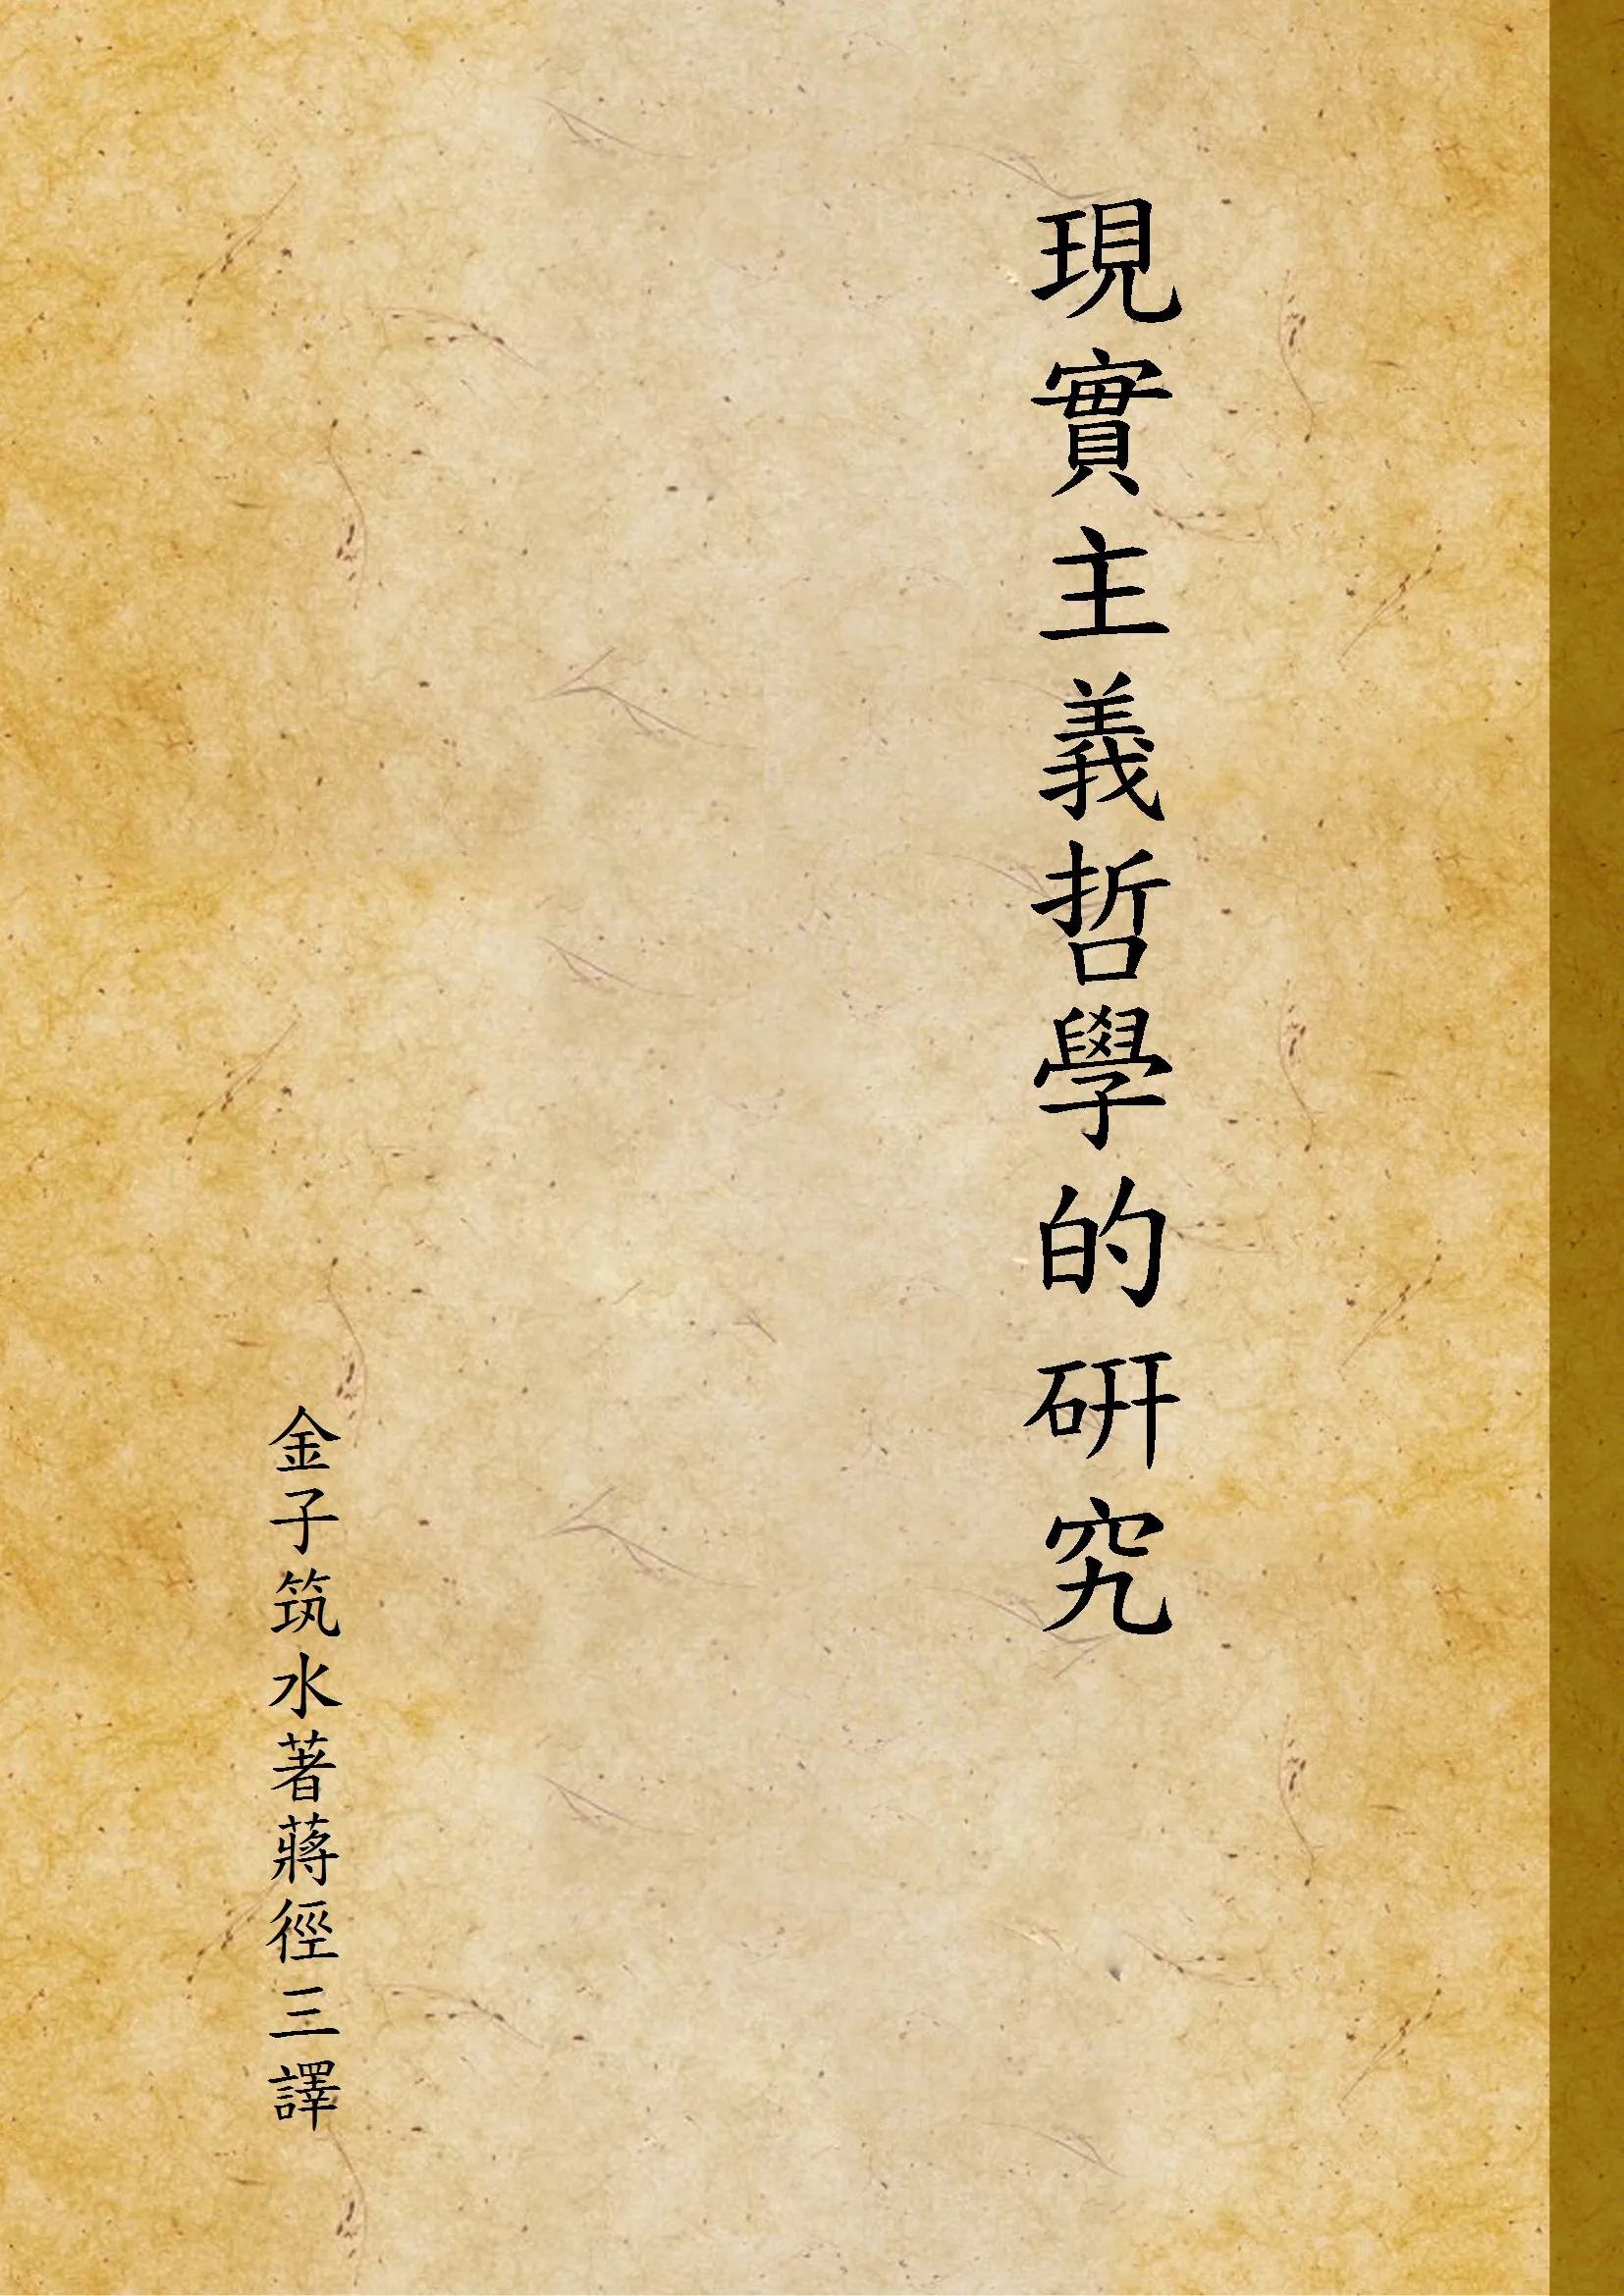 現實主義哲學的研究
金子筑水著蔣徑三譯